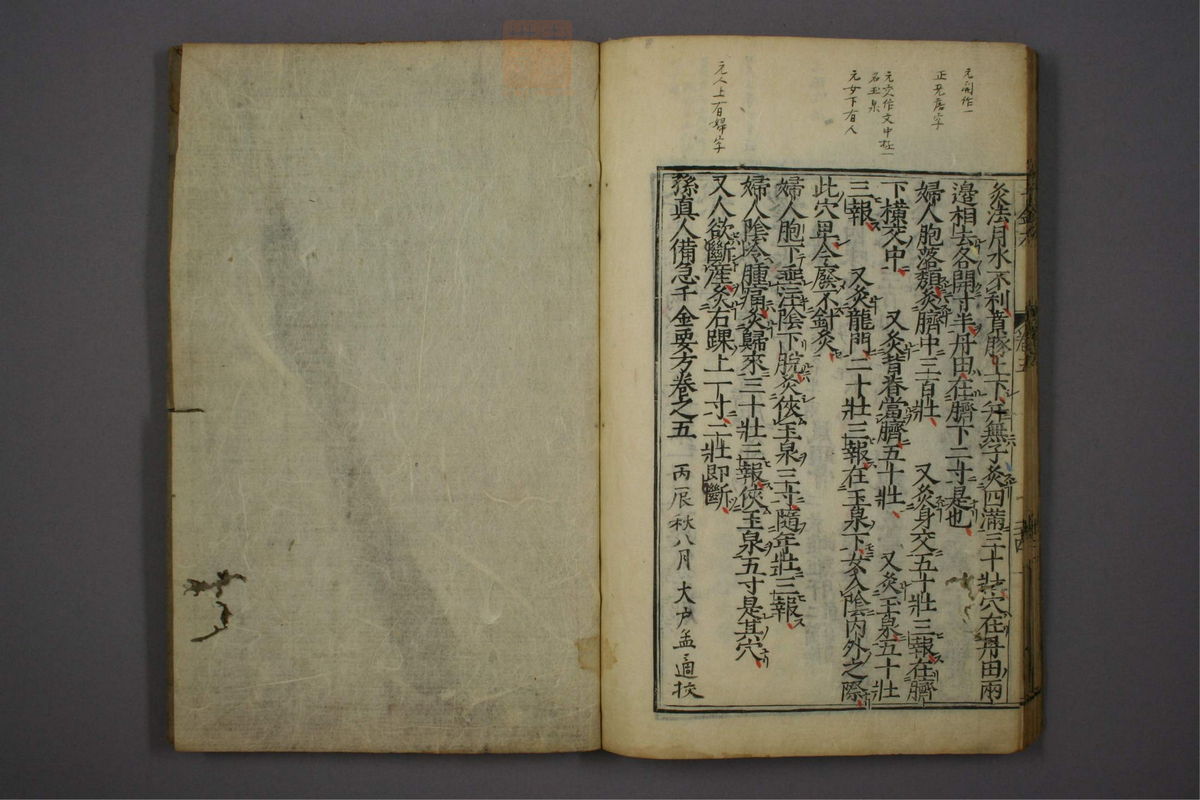 元開作一
正无落字
元交作文中極一
名玉泉
元女下有人
元人上有婦字
灸法月水不利賁豚上下并無子灸四滿三十壯穴在丹田兩
邊相去各開寸半丹田在臍下二寸是也
婦人胞落頹灸臍中三百壯 又灸身交五十壯三報在臍
下橫交中 又灸背脊當臍五十壯 又灸玉泉五十壯
三報 又灸龍門二十壯三報在玉泉下女入陰內外之際
此穴卑今廢不針灸
婦人胞下垂注陰下脫灸俠玉泉三寸隨年壯三報
婦人陰冷腫痛灸歸來三十壯三報俠玉泉五寸是其穴
又人欲斷產灸右踝上一寸三壯即斷
孫真人備急千金要方卷之五 丙辰秋八月 大戶孟適校